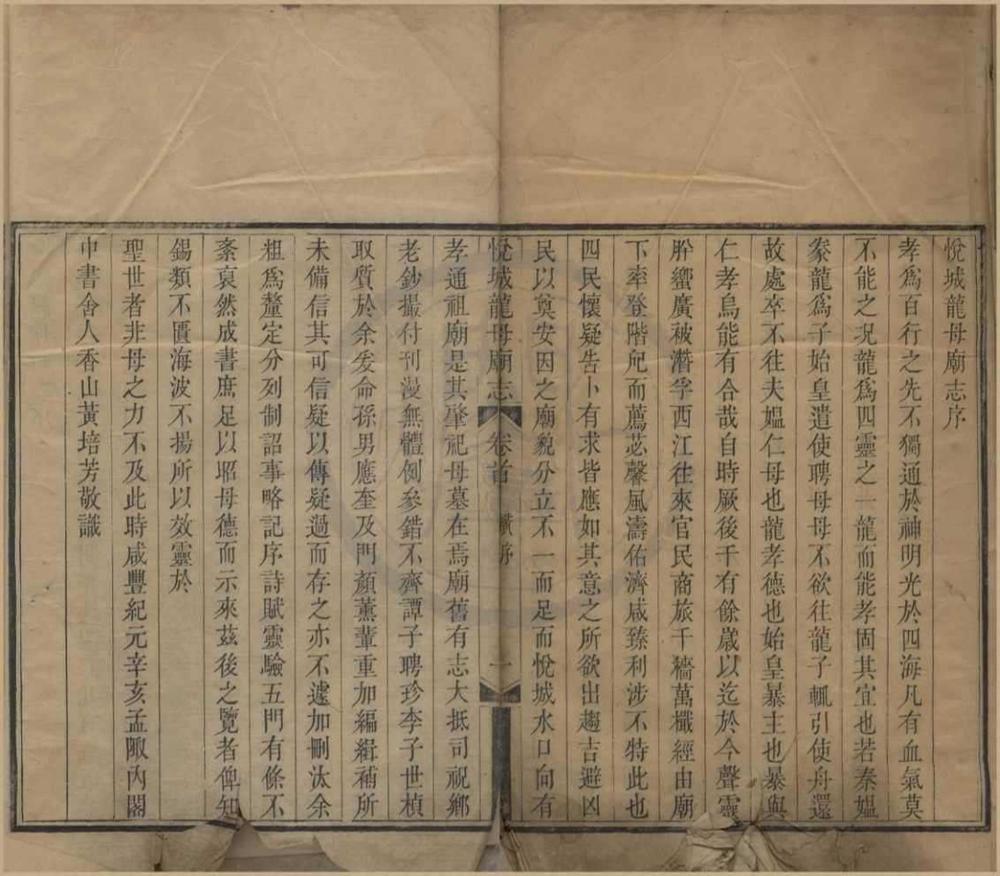 悅城龍母廟志序
孝爲百行之先不獨通於神明光於四海凡有血氣莫
不能之况龍爲四靈之一龍而能孝固其宜也若秦媼
豢龍爲子始皇遣使聘母母不欲往龍子輒引使舟還
故處卒不往夫媼仁母也龍孝德也始皇暴主也暴與
仁孝烏能有合哉自時厥後千有餘歲以迄於今聲靈
肸蠁廣被潛孚西江往來官民商旅千檣萬檥經由廟
下率登階戺而薦苾馨風濤佑濟咸臻利涉不特此也
四民懷疑告卜有求皆應如其意之所欲出趨吉避凶
民以奠安因之廟貌分立不一而足而悅城水口向有
悅城龍母廟志 卷首 序 一
孝通祖廟是其肇祀母墓在焉廟舊有志大抵司祝鄉
老鈔撮付刊漫無體例參錯不齊譚子聘珍李子世楨
取質於余爰命孫男應奎及門顏薰輩重加編緝補所
未備信其可信疑以傳疑過而存之亦不遽加刪汰余
粗爲釐定分列制詔事略記序詩賦靈驗五門有條不
紊裒然成書庶足以昭母德而示來茲後之覽者俾知
錫類不匱海波不揚所以效靈於
聖世者非母之力不及此時咸豐紀元辛亥孟陬內閣
中書舍人香山黃培芳敬識